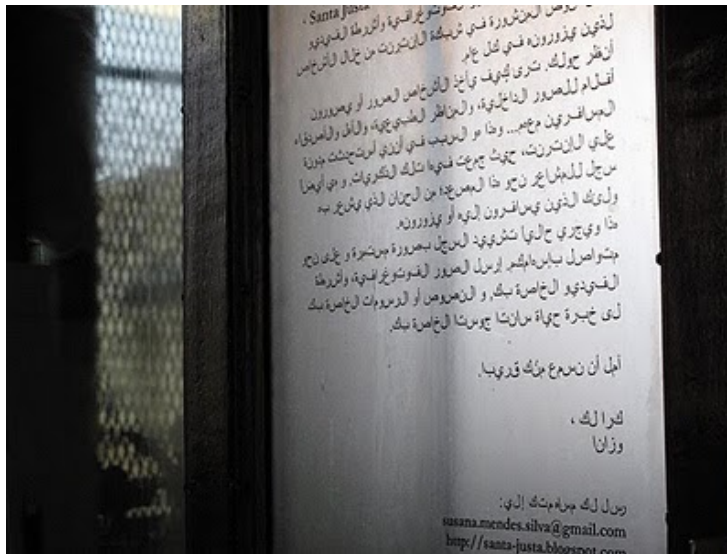 ، Santa Justa
النصوص المنشورة في شبكة الإنترنت من خلال الأشخاص
لذين يزورونه في كل عام.
أنظر حولك. ترى كيف يأخذ الأشخاص الصور أو يصورون
أفلام للصور الداخلية، والمناظر الطبيعية، والأهل والأصدقاء
المسافرين معهم... وهذا هو السبب في أنني أستحدثت مدونة
على الإنترنت، حيث جمعت فيها تلك الذكريات. و هي أيضا
سجل للمشاعر نحو هذا المصعد؛ من الحنان الذي يشعر به
ولئك الذين يسافرون إليه أو يزورونه.
هذا ويجري حالياً تشييد السجل بصورة مستمرة و على نحو
متواصل بإسهامكم. إرسل الصور الفوتوغرافية، وأشرطة
الفيديو الخاصة بك، و النصوص أو الرسومات الخاصة بك
لى خبرة حياة سانتا جوستا الخاصة بك.
آمل أن نسمع منك قريبا.
كرا لك ،
وزانا
رسل لك مساهمتك إلي:
susana.mendes.silva@gmail.com
http://santa-justa.blogspot.com